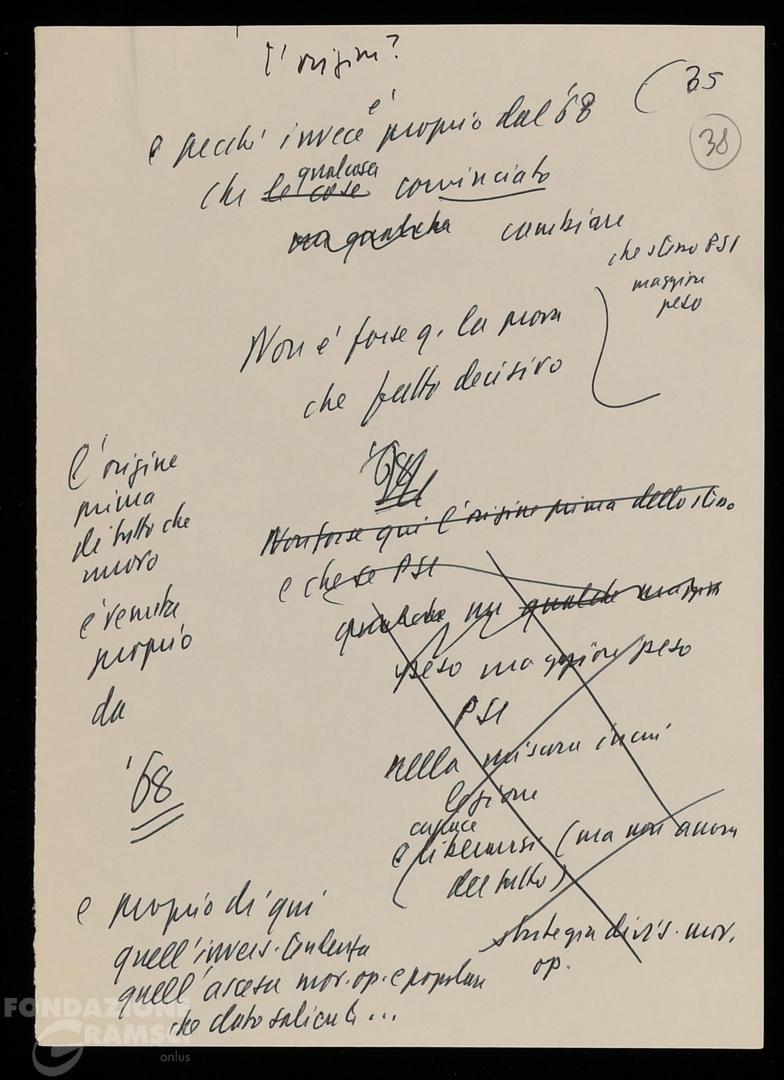 l'origine?
(35
38
e perché invece è proprio dal '68
che le cose qualcosa cominciato
ma qualche cambiare
che stesso PSI
maggior
peso
Non è forse q. la prova
che fatto decisivo
L'origine
prima
di tutto che
nuovo
è venuta
proprio
da
'68
'68
Non forse qui l'origine prima dello stesso
e che se PSI
qualche un qualche maggior
peso maggiore peso
PSI
nella misura in cui
lezione
capace
e liberarsi (ma non ancora
del tutto)
strategia divis. mov.
op.
e proprio di qui
quell'invers. tendenza
quell'ascesa mov. op. e popolare
che dato
FONDAZIONE
GRAMSCI
onlus